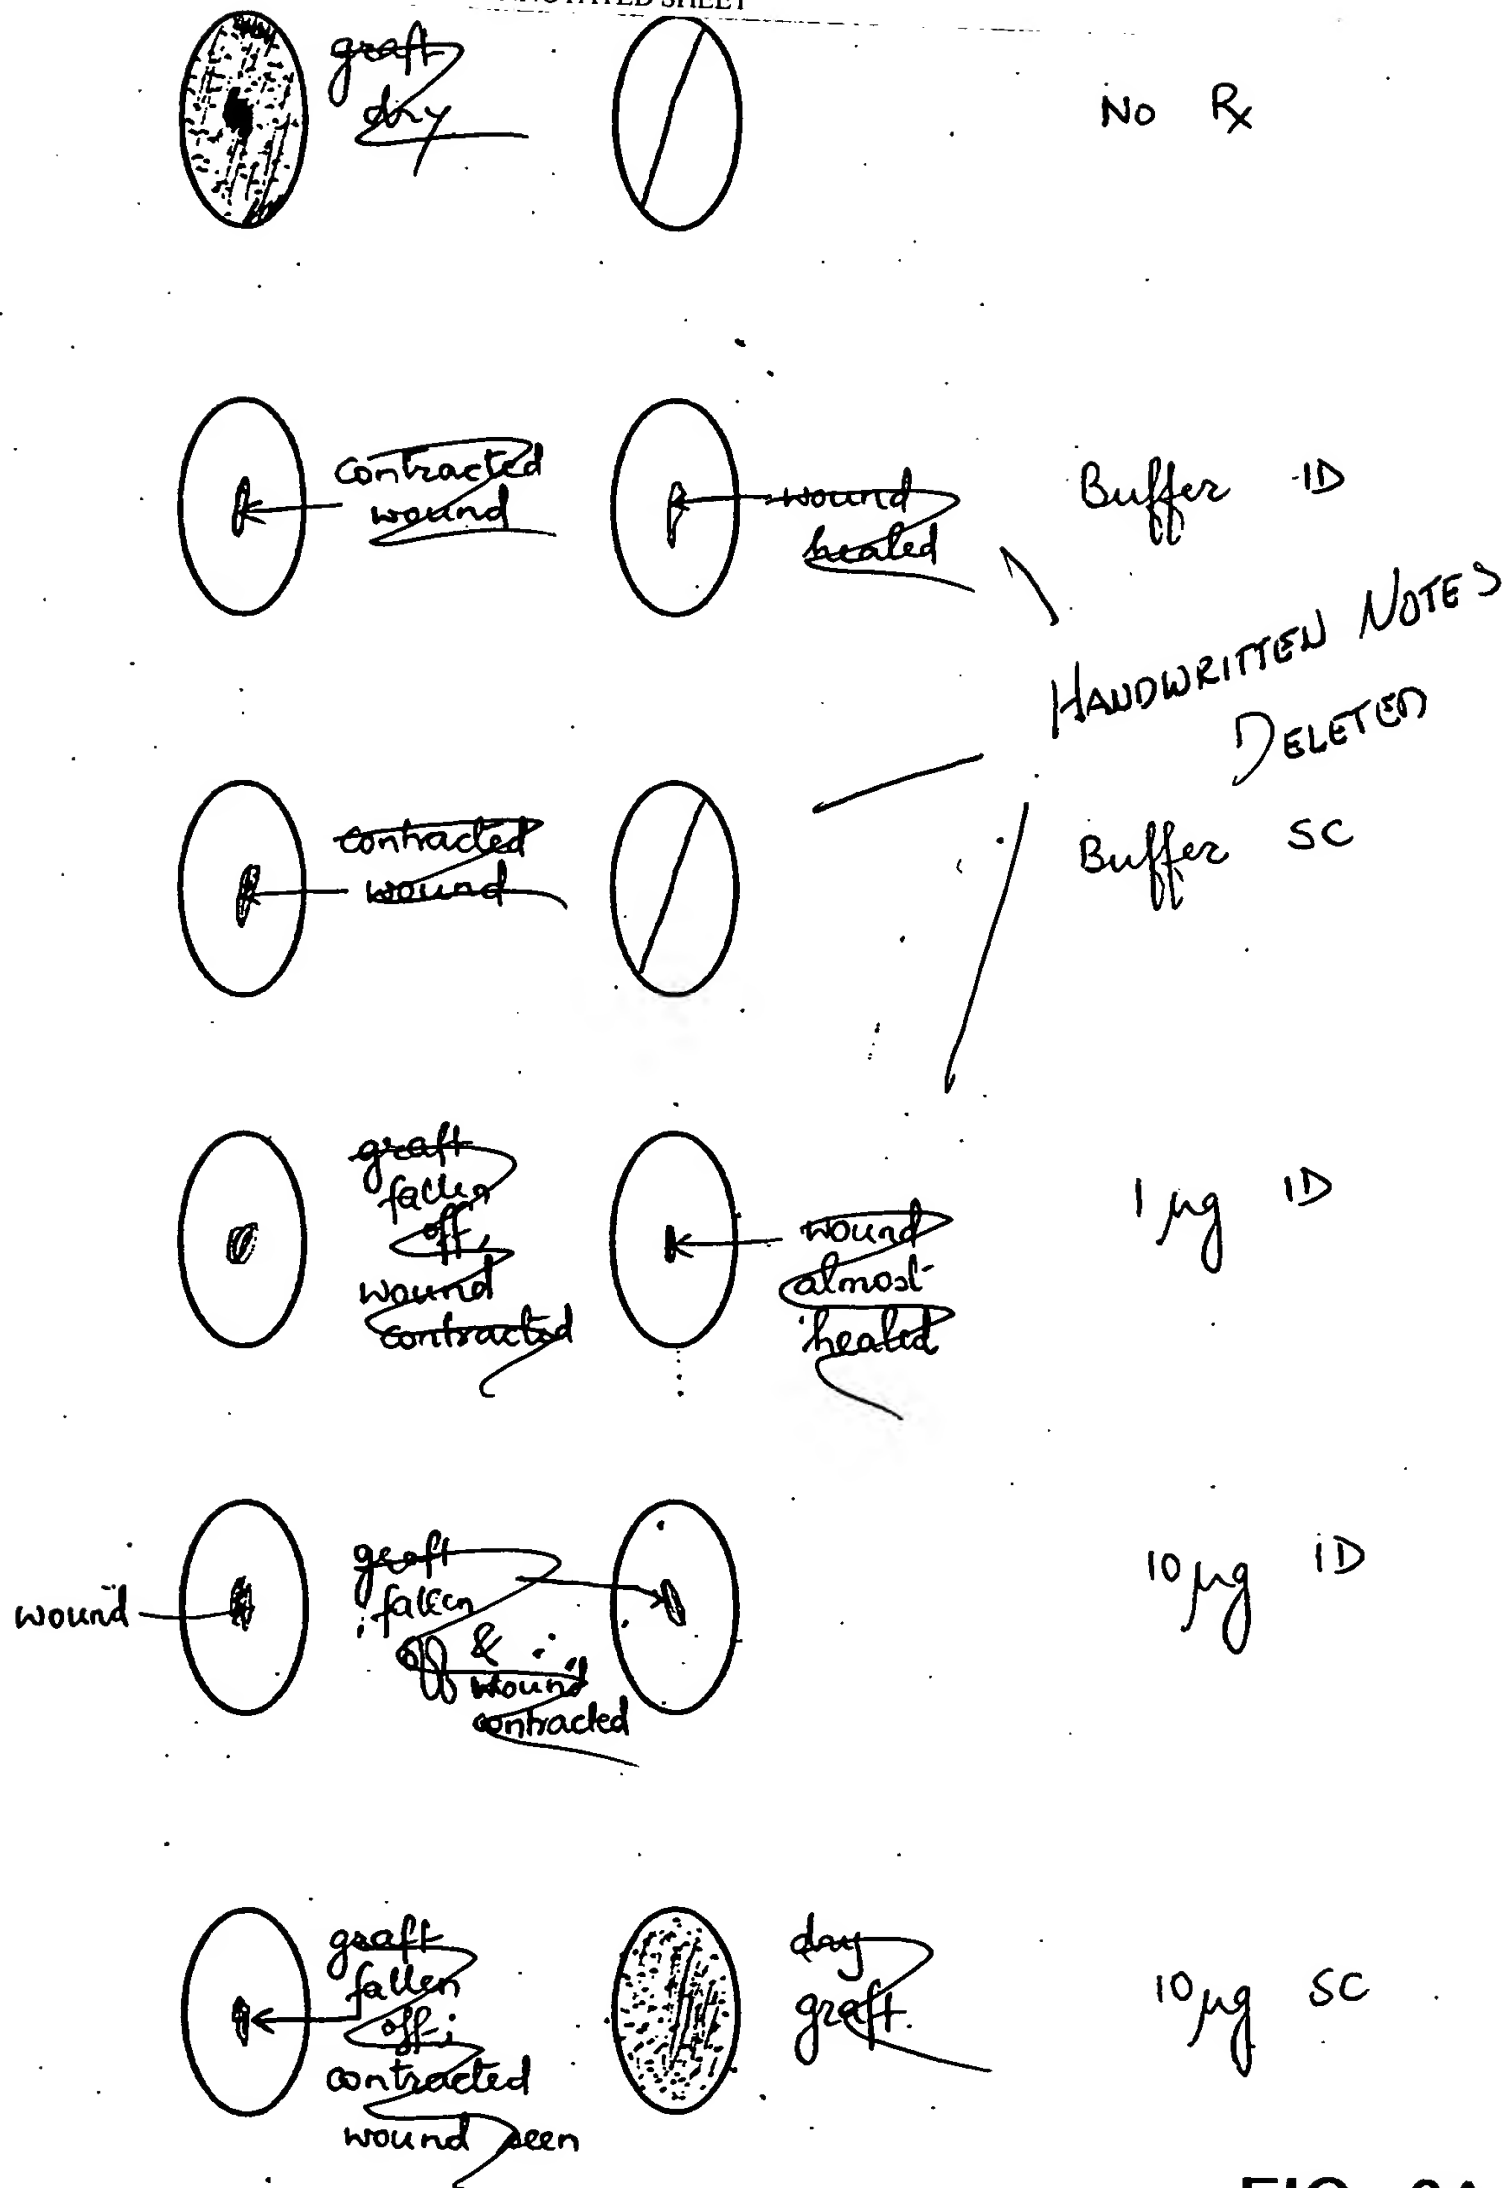 ANNOTATED SHEET
graft
dry
No Rx
contracted
wound
wound
healed
Buffer ID
HANDWRITTEN NOTES
DELETED
contracted
wound
Buffer SC
graft
fallen
off,
wound
contracted
wound
almost
healed
1 μg ID
wound
graft
fallen
off &
wound
contracted
10 μg ID
graft
fallen
off;
contracted
wound seen
dry
graft
10 μg SC